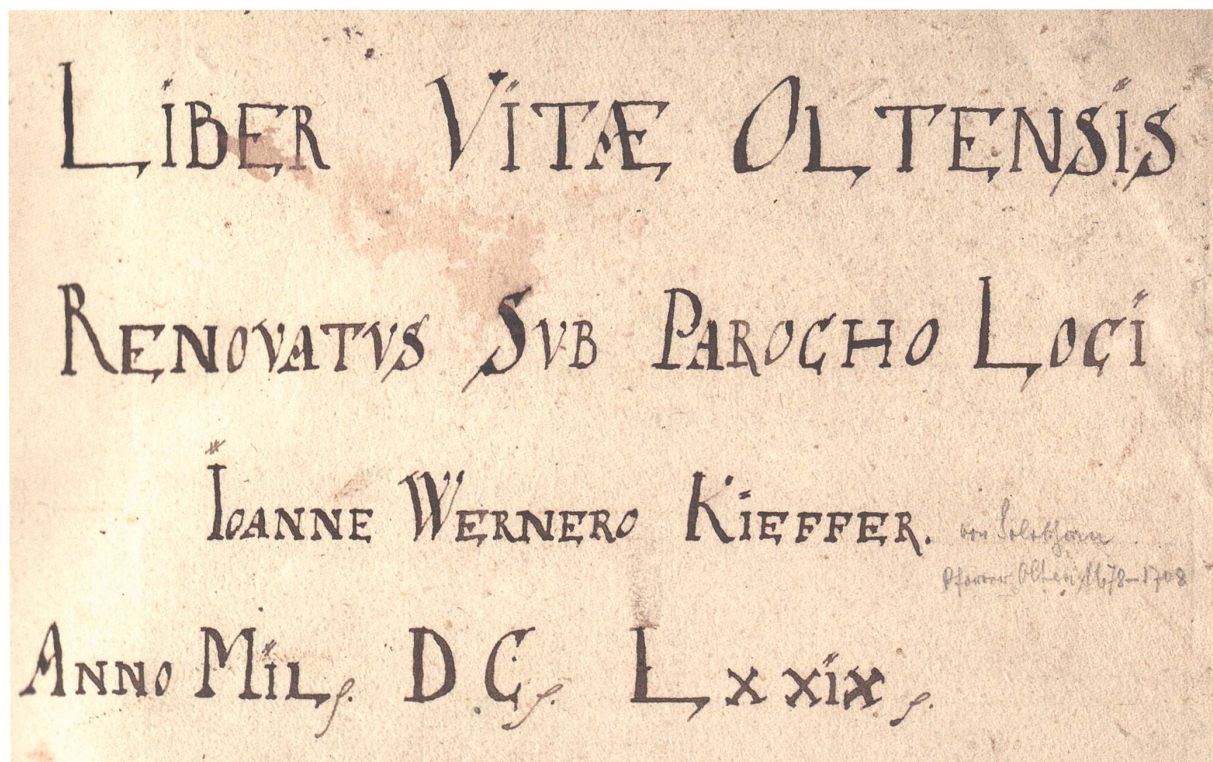 LIBER VITÆ OLTENSIS
RENOVATVS SVB PAROCHO LOCI
IOANNE WERNERO KIEFFER.
von Solothurn
Pfarrer Olten 1678–1708
ANNO MIL. D C. LXXIX.